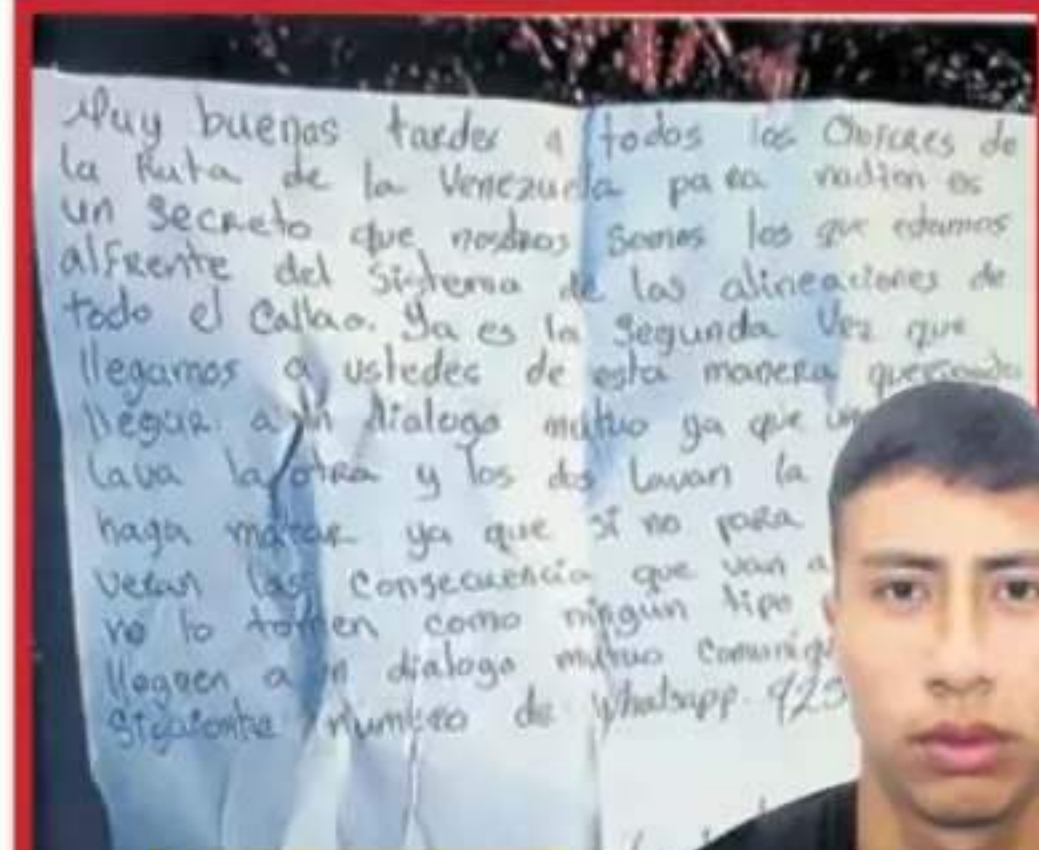 Muy buenas tardes a todos los Choferes de
la Ruta de la Venezuela para nadien es
un secreto que nosotros somos los que estamos
alfrente del Sistema de las alineaciones de
todo el Callao. Ya es la segunda Vez que
llegamos a ustedes de esta manera queriendo
llegar a un dialogo mutuo ya que un
lava la otra y los dos lavan la
haga matar ya que si no para
veran las consecuencia que van a
no lo tomen como ningun tipo
llegen a un dialogo mutuo comuniq
Siguiente numero de Whatsapp. 925